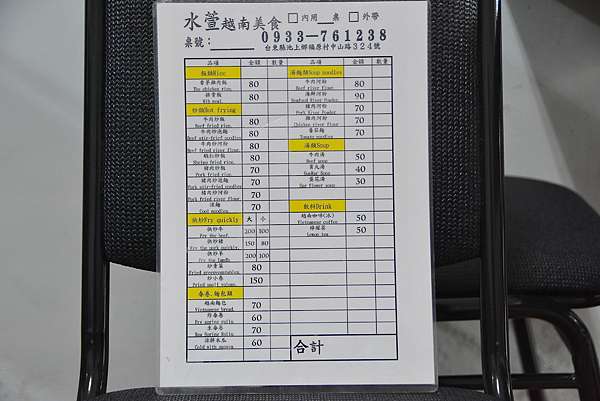 水萱越南美食 □內用__桌 □外帶
桌號:______ 0933-761238
台東縣池上鄉福原村中山路324號
品項 金額 數量 品項 金額 數量
飯類Rice 湯麵類Soup noodles
香茅雞肉飯 80 牛肉河粉 80
The chicken rice. Beef river flour.
排骨飯 80 海鮮河粉 90
Rib meal. Seafood River Powder.
炒類Hot frying 豬肉河粉 70
Pork River Powder
牛肉炒飯 80 雞肉河粉 70
Beef fried rice. Chicken river flour.
牛肉炒泡麵 80 番茄麵 70
Beef stir-fried noodles Tomato noodles
牛肉炒河粉 80 湯類Soup
Beef fried river flour.
蝦仁炒飯 80 牛肉湯 50
Shrimp fried rice. Beef soup
豬肉炒飯 70 貢丸湯 40
Pork fried rice.
豬肉炒泡麵 70 蛋花湯 30
Pork stir-fried noodles
豬肉炒河粉 70
Pork fried river flour.
涼麵 70 飲料Drink
Cool noodles.
快炒Fry quickly 大 小 越南咖啡(冰) 50
Vietnamese coffee
快炒牛 200 100 檸檬茶 50
Fry the beef. Lemon tea
快炒豬 150 80
Fry the pork quickly.
快炒羊 200 100
Fry the lamb.
炒青菜 80
炒小卷 150
春卷.麵包類
越南麵包 70
Vietnamese bread.
炸春卷 60
生春卷 70
涼拌木瓜 60
Cold with papaya.
合計